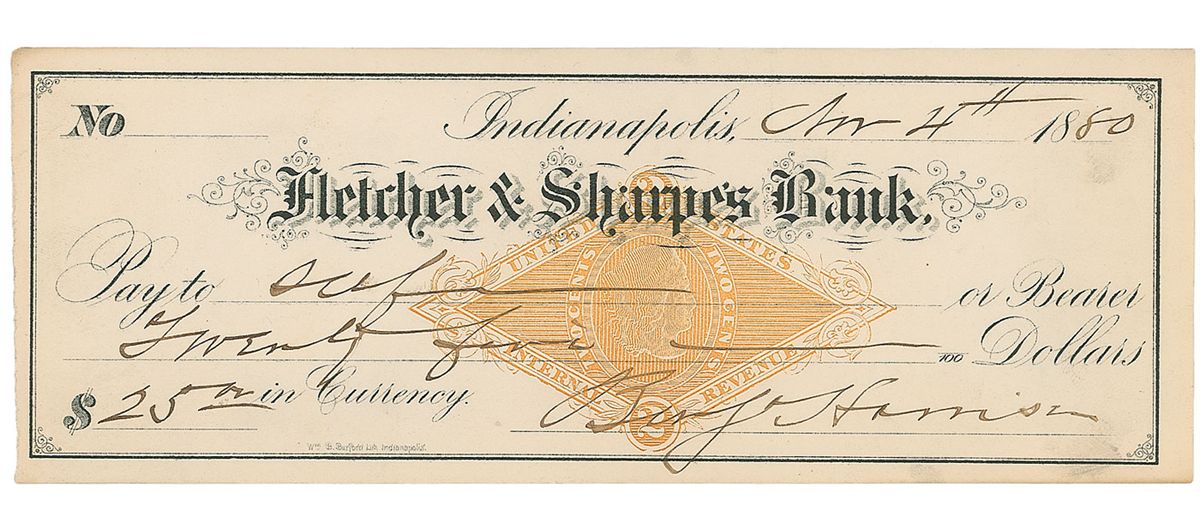 No Indianapolis, Nov 4th 1880
Fletcher & Sharpe's Bank.
Pay to self or Bearer
Twenty five 100 Dollars
$ 25 00 in Currency.
Benj Harrison
UNITED STATES
TWO CENTS TWO CENTS
INTERNAL REVENUE
2
Wm. B. Burford Lith. Indianapolis.